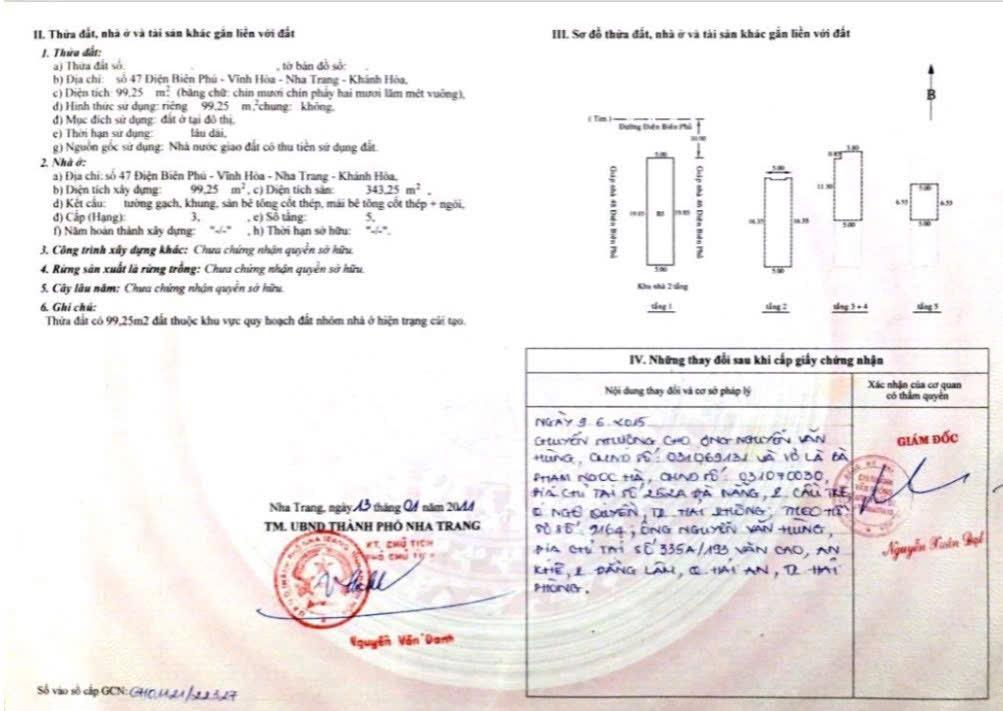 II. Thửa đất, nhà ở và tài sản khác gắn liền với đất
1. Thửa đất:
a) Thửa đất số: . , tờ bản đồ số: .
b) Địa chỉ: số 47 Điện Biên Phủ - Vĩnh Hòa - Nha Trang - Khánh Hòa,
c) Diện tích: 99,25 m², (bằng chữ: chín mươi chín phẩy hai mươi lăm mét vuông),
d) Hình thức sử dụng: riêng 99,25 m,² chung: không,
đ) Mục đích sử dụng: đất ở tại đô thị,
e) Thời hạn sử dụng: lâu dài,
g) Nguồn gốc sử dụng: Nhà nước giao đất có thu tiền sử dụng đất.
2. Nhà ở:
a) Địa chỉ: số 47 Điện Biên Phủ - Vĩnh Hòa - Nha Trang - Khánh Hòa,
b) Diện tích xây dựng: 99,25 m², c) Diện tích sàn: 343,25 m²,
d) Kết cấu: tường gạch, khung, sàn bê tông cốt thép, mái bê tông cốt thép + ngói,
đ) Cấp (Hạng): 3, , e) Số tầng: 5,
f) Năm hoàn thành xây dựng: "-/-" , h) Thời hạn sở hữu: "-/-".
3. Công trình xây dựng khác: Chưa chứng nhận quyền sở hữu.
4. Rừng sản xuất là rừng trồng: Chưa chứng nhận quyền sở hữu.
5. Cây lâu năm: Chưa chứng nhận quyền sở hữu.
6. Ghi chú:
Thửa đất có 99,25m2 đất thuộc khu vực quy hoạch đất nhóm nhà ở hiện trạng cải tạo.
Nha Trang, ngày 13 tháng 01 năm 2011
TM. UBND THÀNH PHỐ NHA TRANG
KT. CHỦ TỊCH
PHÓ CHỦ TỊCH
Nguyễn Văn Danh
Số vào sổ cấp GCN:
III. Sơ đồ thửa đất, nhà ở và tài sản khác gắn liền với đất
B
( Tim )
Đường Điện Biên Phủ
10.00
5.00
Giáp nhà 48 Điện Biên Phủ
19.85
B3
19.85
5.00
Khu nhà 2 tầng
tầng 1
5.00
16.35
16.35
5.00
tầng 2
3.80
0.85
11.30
5.00
tầng 3 + 4
5.00
6.55
6.55
5.00
tầng 5
IV. Những thay đổi sau khi cấp giấy chứng nhận
Nội dung thay đổi và cơ sở pháp lý
Xác nhận của cơ quan
có thẩm quyền
NGÀY 9.6.2015
CHUYỂN NHƯỢNG CHO ÔNG NGUYỄN VĂN
HÙNG, CMND SỐ: 031069131 VÀ VỢ LÀ BÀ
PHẠM NGỌC HÀ, CMND SỐ: 031070030,
ĐỊA CHỈ TẠI SỐ 252A ĐÀ NẴNG, P. CẦU TRE,
Q NGÔ QUYỀN, TP. HẢI PHÒNG; THEO HỒ
SƠ SỐ: 2164; ÔNG NGUYỄN VĂN HÙNG,
ĐỊA CHỈ TẠI SỐ 335A/193 VĂN CAO, AN
KHÊ, P. ĐẰNG LÂM, Q. HẢI AN, TP. HẢI
PHÒNG.
GIÁM ĐỐC
Nguyễn Xuân Đạt